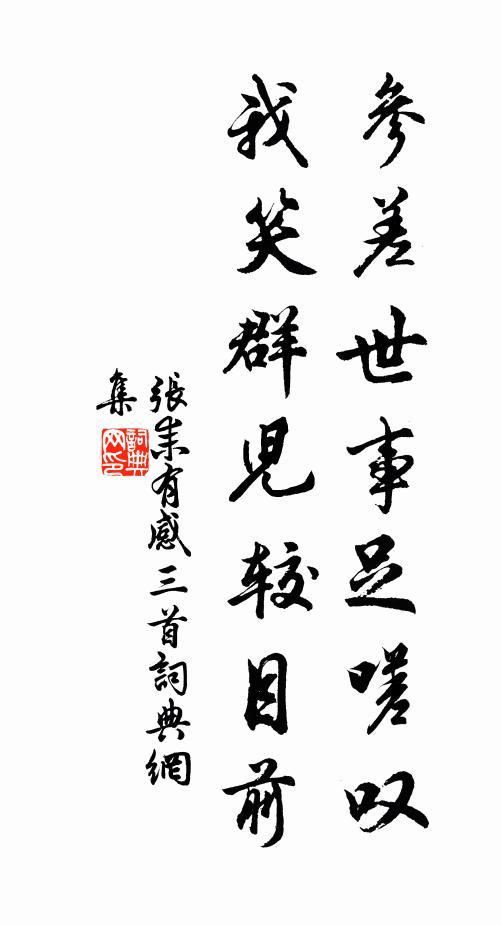 參差世事足嗟叹
我笑群児较目前
張耒有感三首詞典網
集
詞典
网印